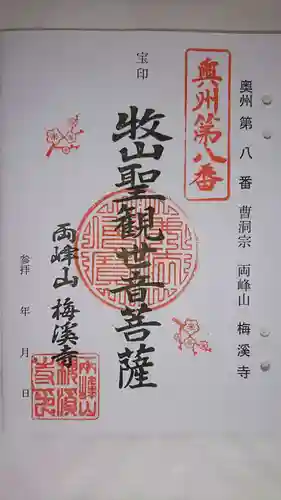 奥州 第 八 番 曹洞宗 両峰山 梅溪寺
奥州第八番
宝印
牧山聖観世音菩薩
両峰山 梅溪寺
参拝 年 月 日